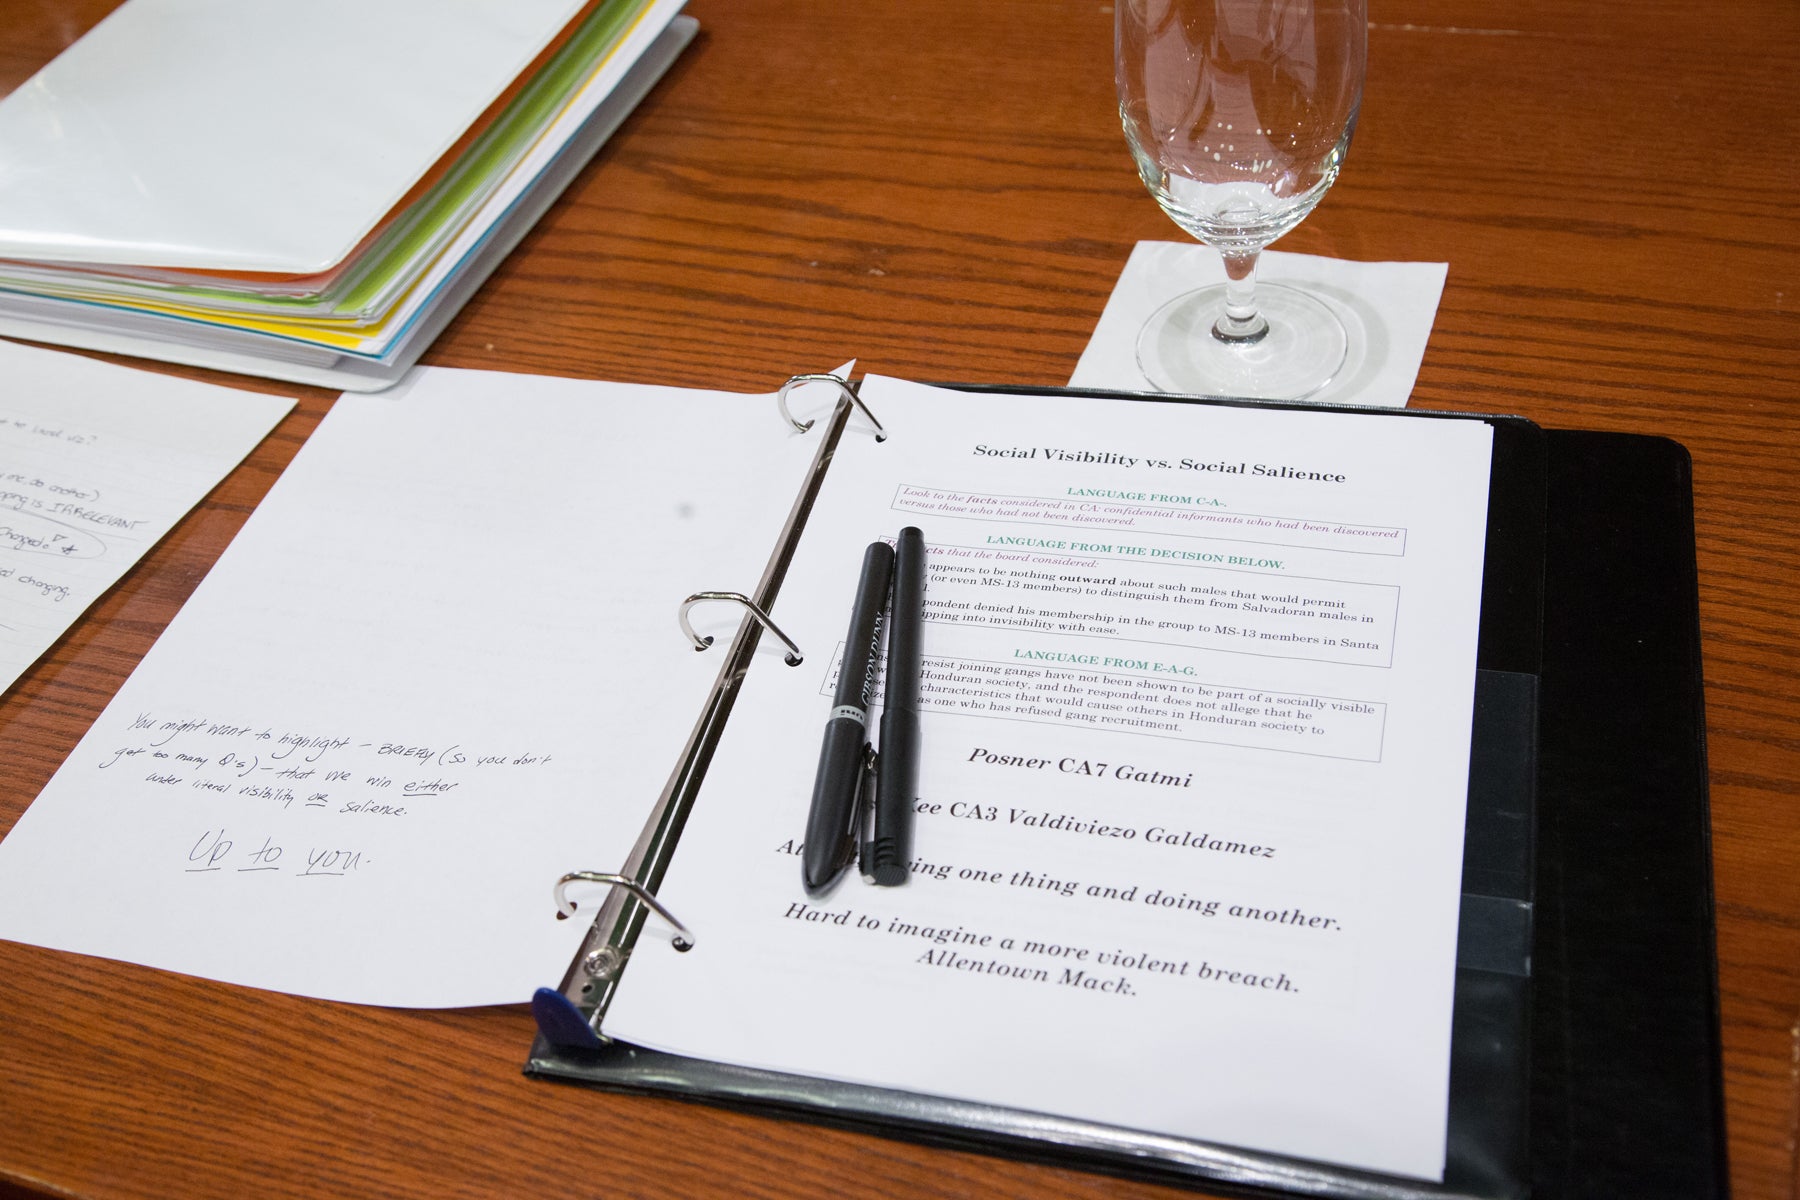 t
viz?
me, do another)
pping is IRRELEVANT
changed?
changing.
You might want to highlight – BRIEFLY (so you don't
get too many Q's) – that we win either
under literal visibility or salience.
Up to you.
Social Visibility vs. Social Salience
LANGUAGE FROM C-A-.
Look to the facts considered in CA: confidential informants who had been discovered
versus those who had not been discovered.
LANGUAGE FROM THE DECISION BELOW.
acts that the board considered:
appears to be nothing outward about such males that would permit
(or even MS-13 members) to distinguish them from Salvadoran males in
pondent denied his membership in the group to MS-13 members in Santa
ipping into invisibility with ease.
LANGUAGE FROM E-A-G.
resist joining gangs have not been shown to be part of a socially visible
Honduran society, and the respondent does not allege that he
characteristics that would cause others in Honduran society to
as one who has refused gang recruitment.
GIBSON DUNN
Posner CA7 Gatmi
Kee CA3 Valdiviezo Galdamez
ying one thing and doing another.
Hard to imagine a more violent breach.
Allentown Mack.